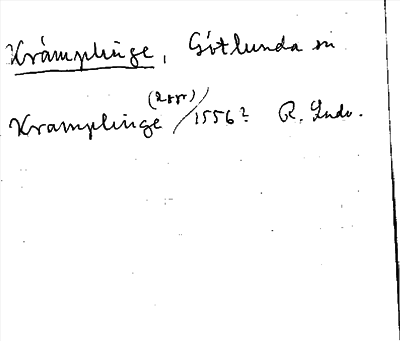 Krämplinge, Götlunda sn
Kramplinge /1556? R. Ludv.